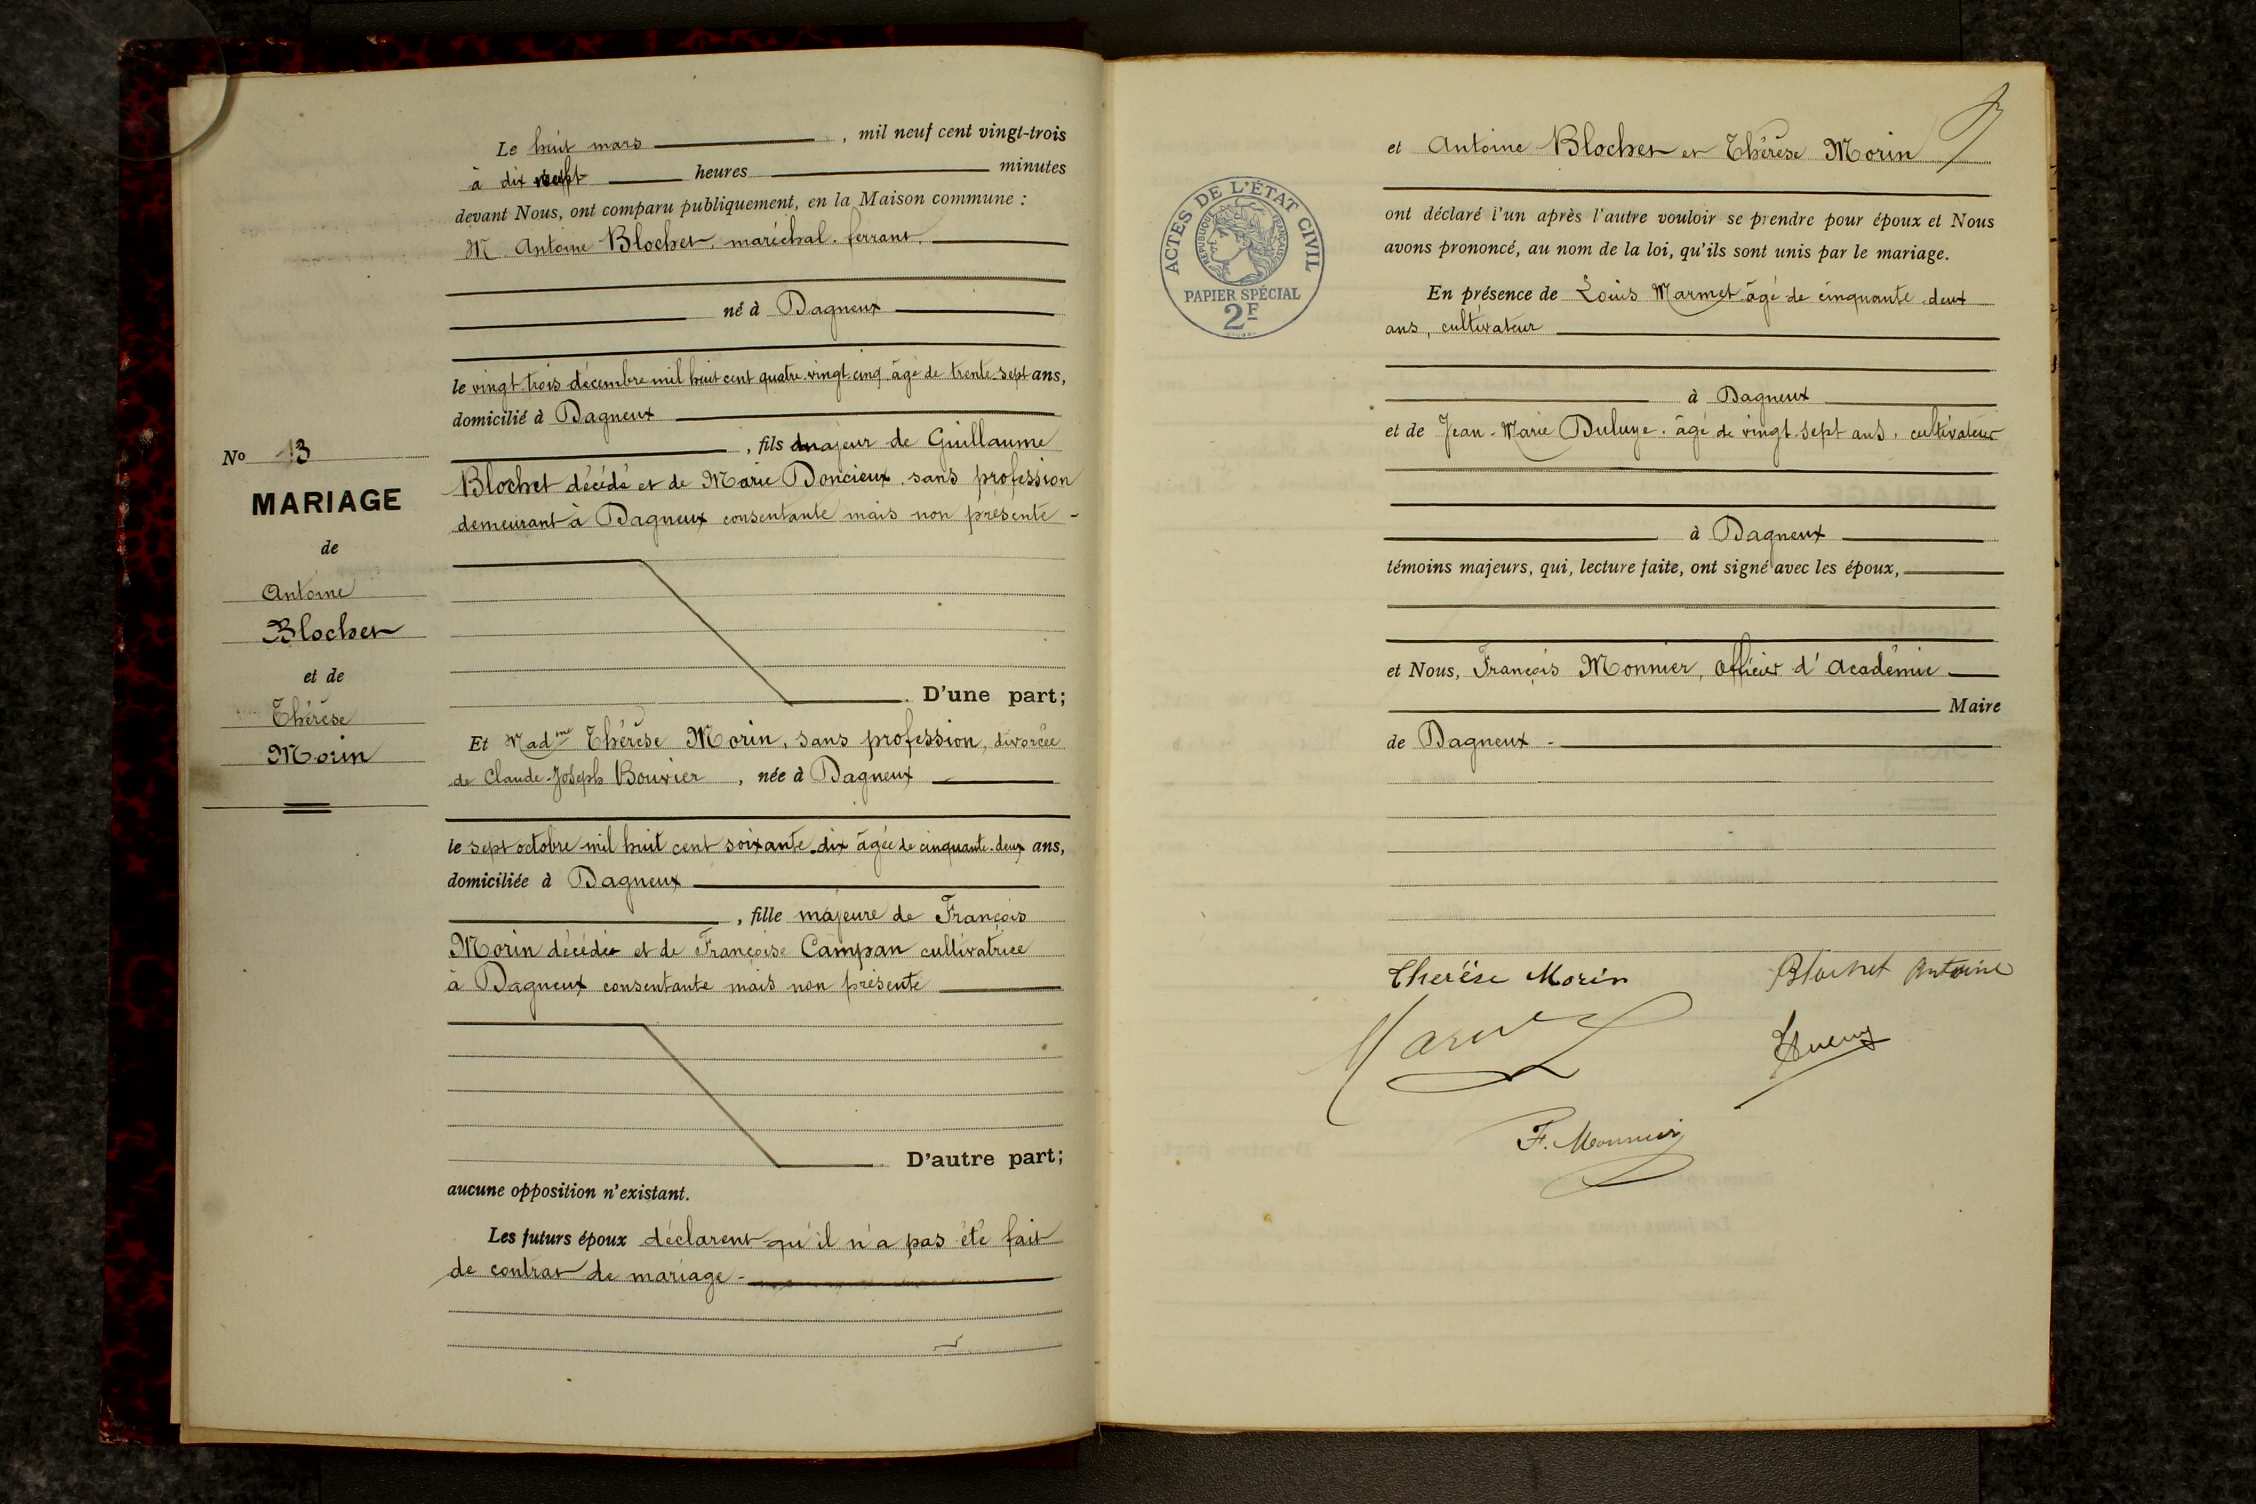 Le huit mars, mil neuf cent vingt-trois
à dix sept heures minutes
devant Nous, ont comparu publiquement, en la Maison commune :
M. Antoine Blochet, maréchal-ferrant,
né à Dagneux
le vingt trois décembre mil huit cent quatre-vingt-cinq âgé de trente-sept ans,
domicilié à Dagneux
, fils majeur de Guillaume
Blochet décédé et de Marie Doncieux, sans profession
demeurant à Dagneux consentante mais non présente -
D'une part;
Et Madme Thérèse Morin, sans profession, divorcée
de Claude-Joseph Bouvier, née à Dagneux
le sept octobre mil huit cent soixante-dix âgée de cinquante-deux ans,
domiciliée à Dagneux
, fille majeure de François
Morin décédé et de Françoise Campan cultivatrice
à Dagneux consentante mais non présente
D'autre part;
aucune opposition n'existant.
Les futurs époux déclarent qu'il n'a pas été fait
de contrat de mariage -
No 13
MARIAGE
de
Antoine
Blochet
et de
Thérèse
Morin
et Antoine Blochet et Thérèse Morin
ont déclaré l'un après l'autre vouloir se prendre pour époux et Nous
avons prononcé, au nom de la loi, qu'ils sont unis par le mariage.
En présence de Louis Marmet âgé de cinquante-deux
ans, cultivateur
à Dagneux
et de Jean-Marie Duluye, âgé de vingt-sept ans, cultivateur
à Dagneux
témoins majeurs, qui, lecture faite, ont signé avec les époux,
et Nous, François Monnier, officier d'Académie
Maire
de Dagneux -
Therése Morin
Blochet Antoine
F. Monnier
ACTES DE L'ÉTAT CIVIL
RÉPUBLIQUE FRANÇAISE
PAPIER SPÉCIAL
2F